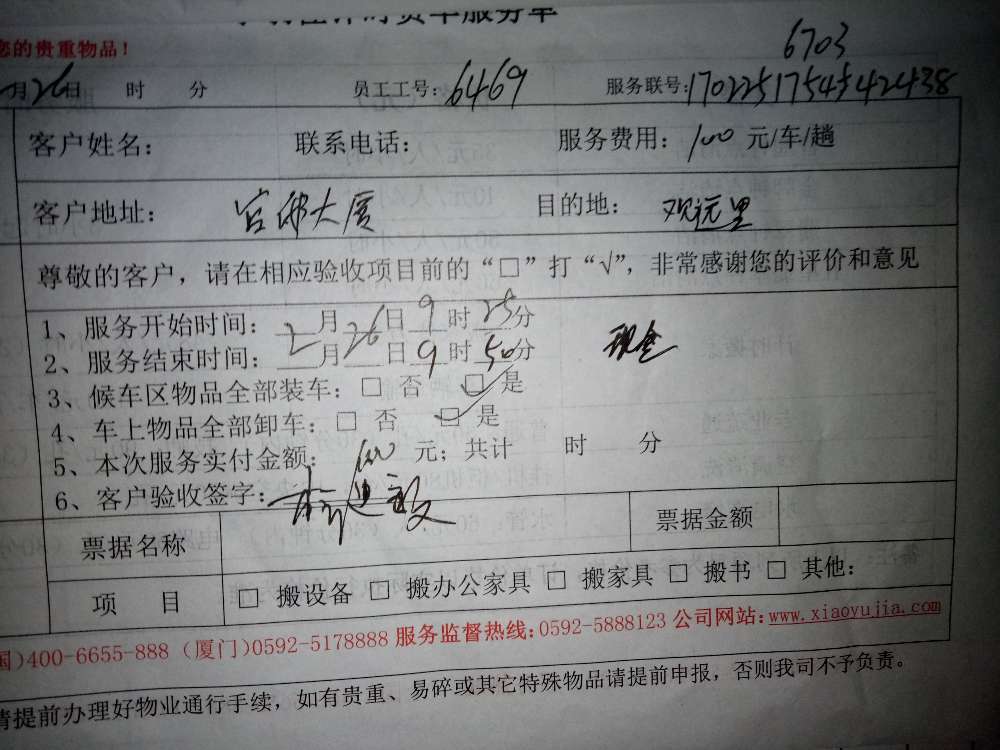 时货车服务单
您的贵重物品！
6703
月26日 时 分 员工工号：6469 服务联号：
客户姓名： 联系电话： 服务费用：100 元/车/趟
客户地址： 大厦 目的地： 远里
尊敬的客户，请在相应验收项目前的“□”打“√”，非常感谢您的评价和意见
1、服务开始时间：2月26日9时25分
2、服务结束时间：月日9时50分 现金
3、候车区物品全部装车：□ 否 □ 是
4、车上物品全部卸车：□ 否 □ 是
5、本次服务实付金额：100 元；共计 时 分
6、客户验收签字：
票据名称 票据金额
项 目 □ 搬设备 □ 搬办公家具 □ 搬家具 □ 搬书 □ 其他：
国）400-6655-888（厦门）0592-5178888 服务监督热线：0592-5888123 公司网站：www.xiaoyujia.com
请提前办理好物业通行手续，如有贵重、易碎或其它特殊物品请提前申报，否则我司不予负责。